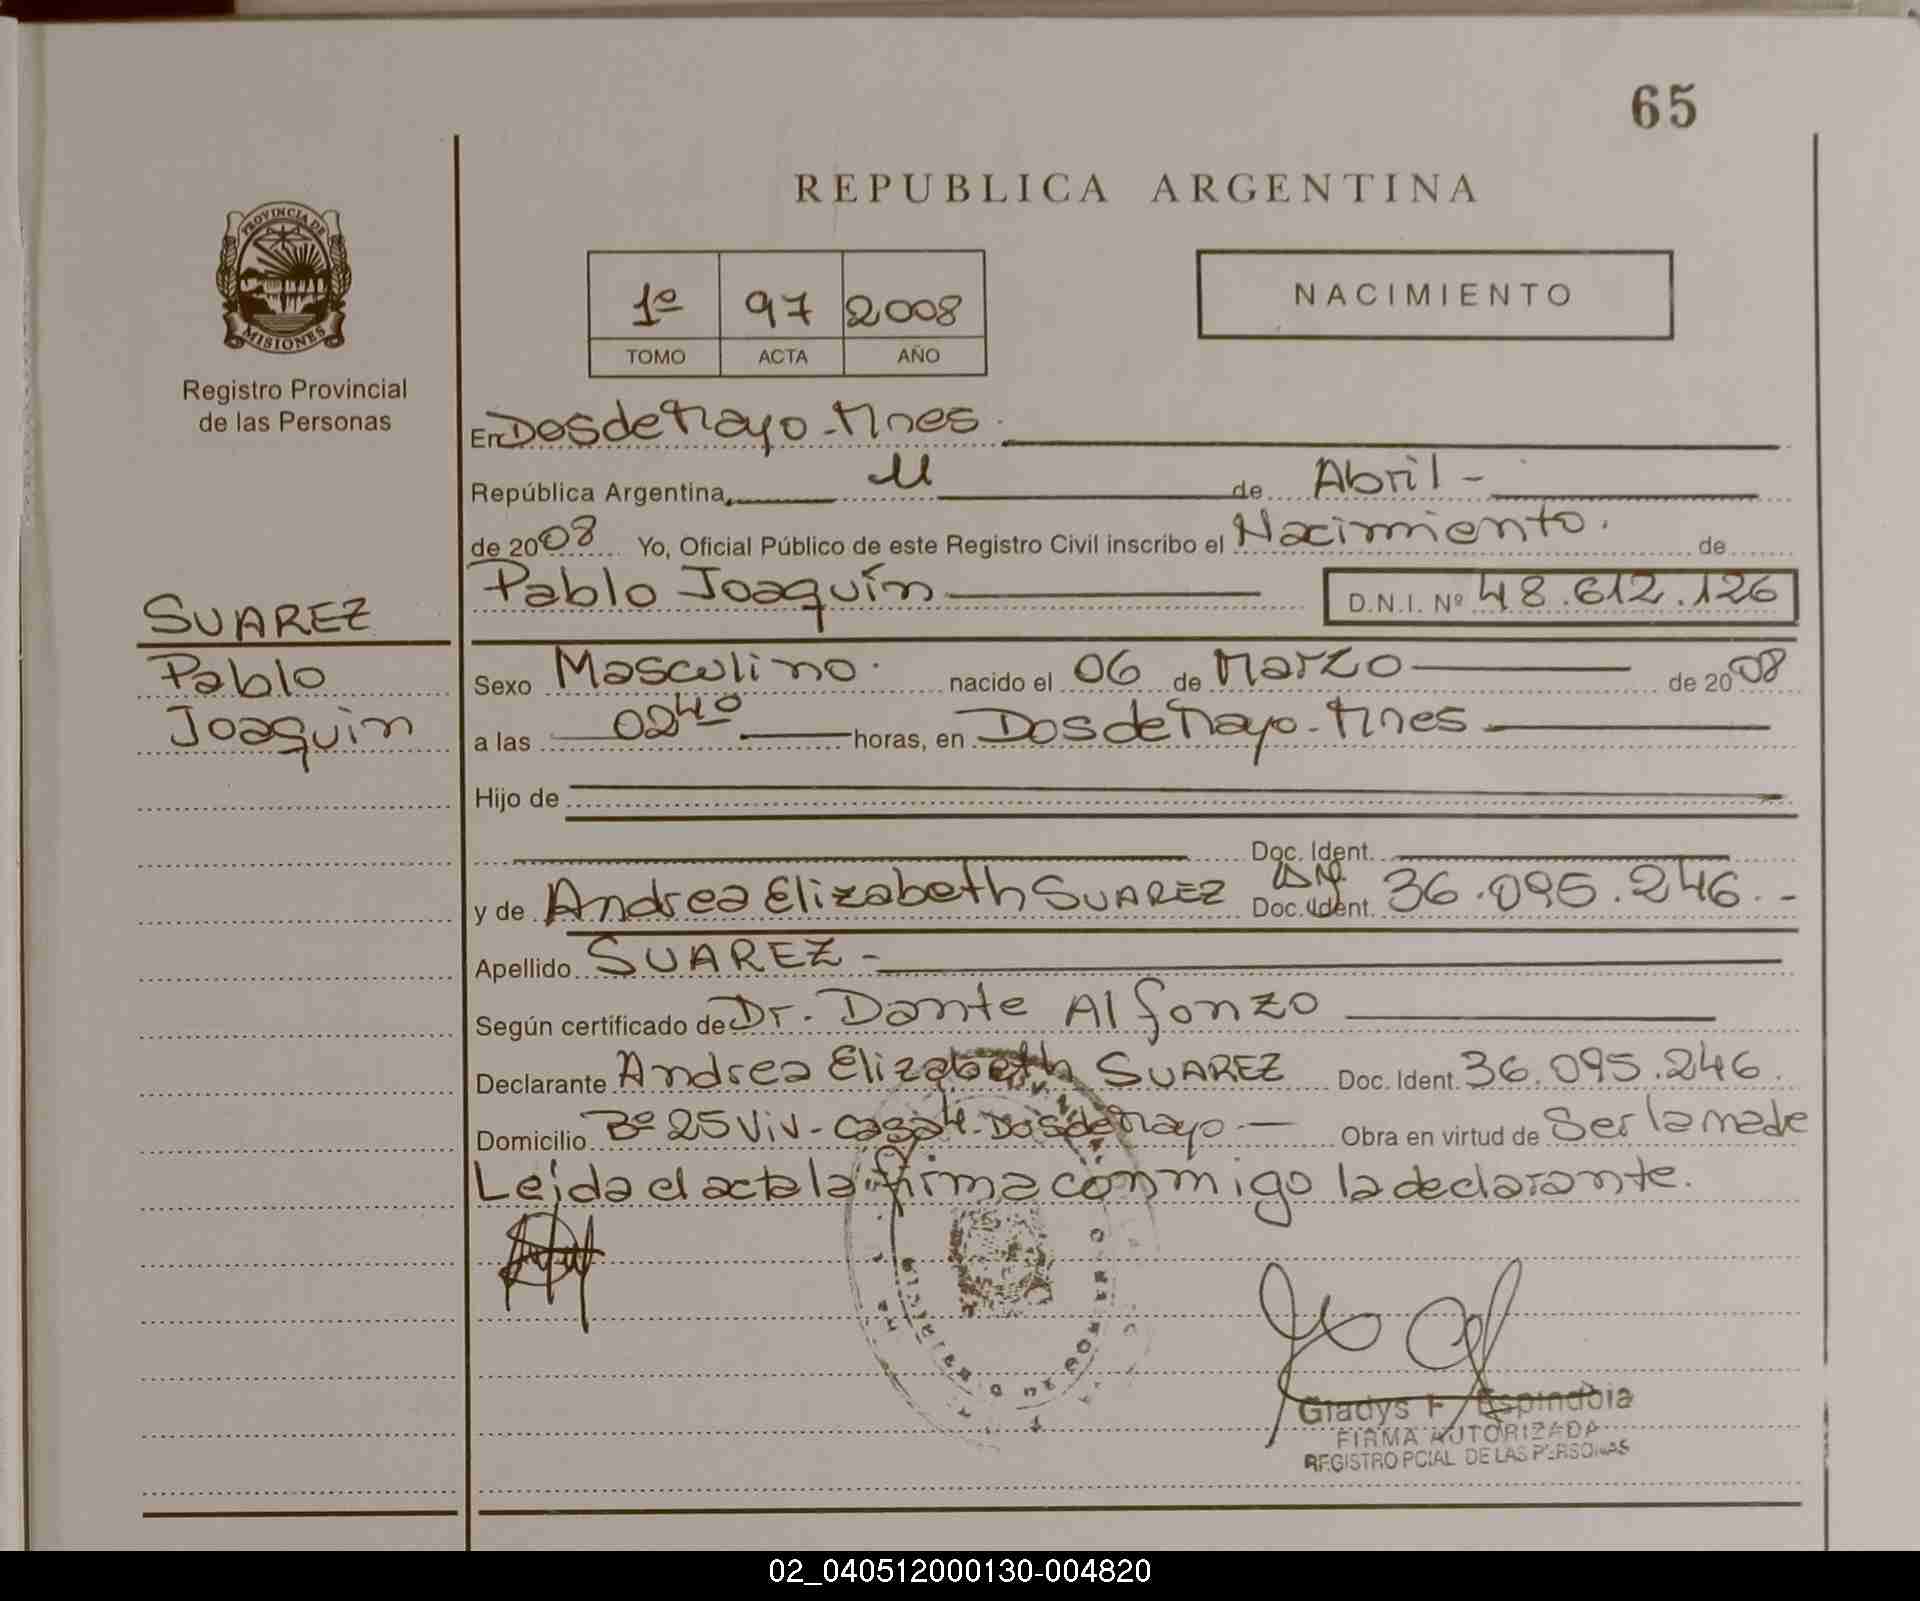 65
REPUBLICA ARGENTINA
PROVINCIA DE
MISIONES
Registro Provincial
de las Personas
1º 97 2008
TOMO ACTA AÑO
NACIMIENTO
En Dos de Mayo - Mnes.
República Argentina, 11 de Abril -
de 2008 Yo, Oficial Público de este Registro Civil inscribo el Nacimiento. de
Pablo Joaquín D.N.I. Nº 48.612.126
SUAREZ
Pablo
Joaquin
Sexo Masculino. nacido el 06 de Marzo de 2008
a las 02⁴⁰ horas, en Dos de Mayo - Mnes
Hijo de
Doc. Ident.
y de Andrea Elizabeth SUAREZ DNI Doc. Ident. 36.095.246. -
Apellido SUAREZ -
Según certificado de Dr. Dante Alfonzo
Declarante Andrea Elizabeth SUAREZ Doc. Ident. 36.095.246.
Domicilio Bº 25 Viv - casa 4 - Dos de Mayo - Obra en virtud de Ser la madre
Leida el acta la firma conmigo la declarante.
Gladys F. Espindola
FIRMA AUTORIZADA
REGISTRO PCIAL DE LAS PERSONAS
02_040512000130-004820